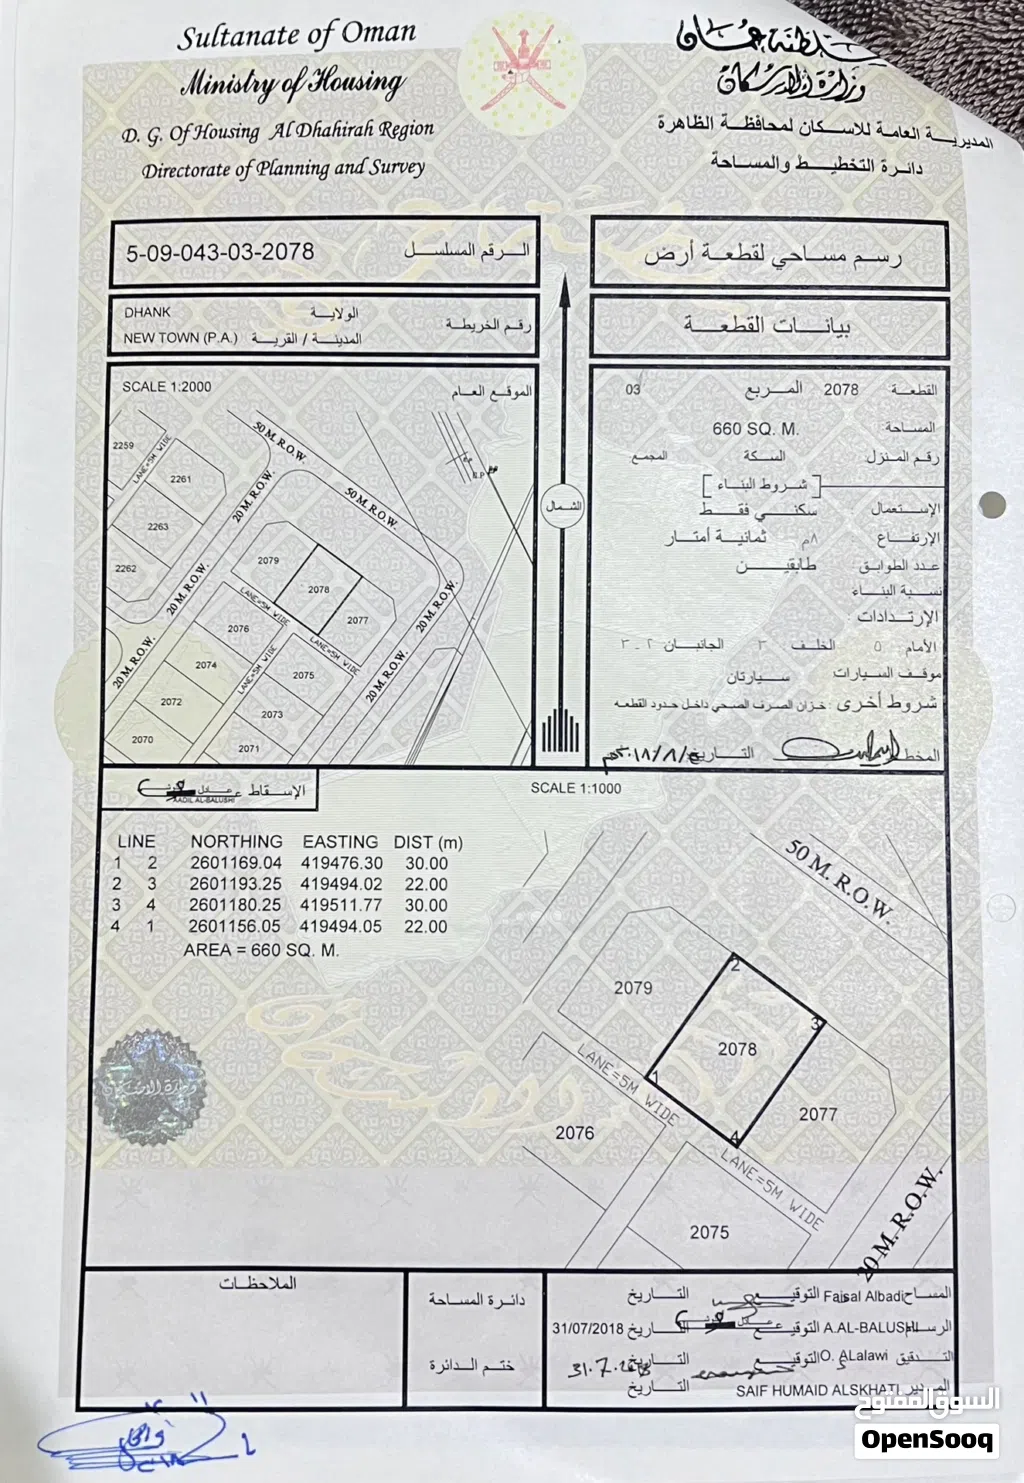 Sultanate of Oman
Ministry of Housing
D. G. Of Housing Al Dhahirah Region
Directorate of Planning and Survey
سلطنة عمان
وزارة الإسكان
المديرية العامة للاسكان لمحافظة الظاهرة
دائرة التخطيط والمساحة
5-09-043-03-2078 الرقم المسلسل
رسم مساحي لقطعة أرض
رقم الخريطة
DHANK الولاية
NEW TOWN (P.A.) المدينة / القرية
بيانات القطعة
SCALE 1:2000 الموقع العام
50 M. R.O.W.
50 M. R.O.W.
20 M. R.O.W.
20 M. R.O.W.
20 M. R.O.W.
20 M. R.O.W.
20 M. R.O.W.
LANE=5M WIDE
LANE=5M WIDE
LANE=5M WIDE
LANE=5M WIDE
2259
2261
2263
2262
2079
2078
2077
2076
2074
2075
2072
2073
2070
2071
الشمال
القطعة 2078 المربع 03
المساحة 660 SQ. M.
رقم المنزل السكة المجمع
شروط البناء
الإستعمال سكني فقط
الإرتفاع ٨م ثمانية أمتار
عدد الطوابق طابقين
نسبة البناء
الإرتدادات
الأمام ٥ الخلف ٣ الجانبان ٢ـ٣
موقف السيارات سيارتان
شروط أخرى : خزان الصرف الصحي داخل حدود القطعه
المخطط التاريخ
الإسقاط
AADIL AL-BALUSHI
SCALE 1:1000
LINE NORTHING EASTING DIST (m)
1 2 2601169.04 419476.30 30.00
2 3 2601193.25 419494.02 22.00
3 4 2601180.25 419511.77 30.00
4 1 2601156.05 419494.05 22.00
AREA = 660 SQ. M.
50 M. R.O.W.
2079
2
3
2078
1
4
2077
LANE=5M WIDE
2076
LANE=5M WIDE
2075
20 M. R.O.W.
وزارة الاسكان
الملاحظات
دائرة المساحة
ختم الدائرة
المساح Faisal Albadi التوقيع التاريخ
الرسام A.AL-BALUSHI التوقيع التاريخ 31/07/2018
التدقيق O. ALalawi التوقيع التاريخ 31.7.2018
المدير SAIF HUMAID ALSKHATI التاريخ
السوق المفتوح
OpenSooq